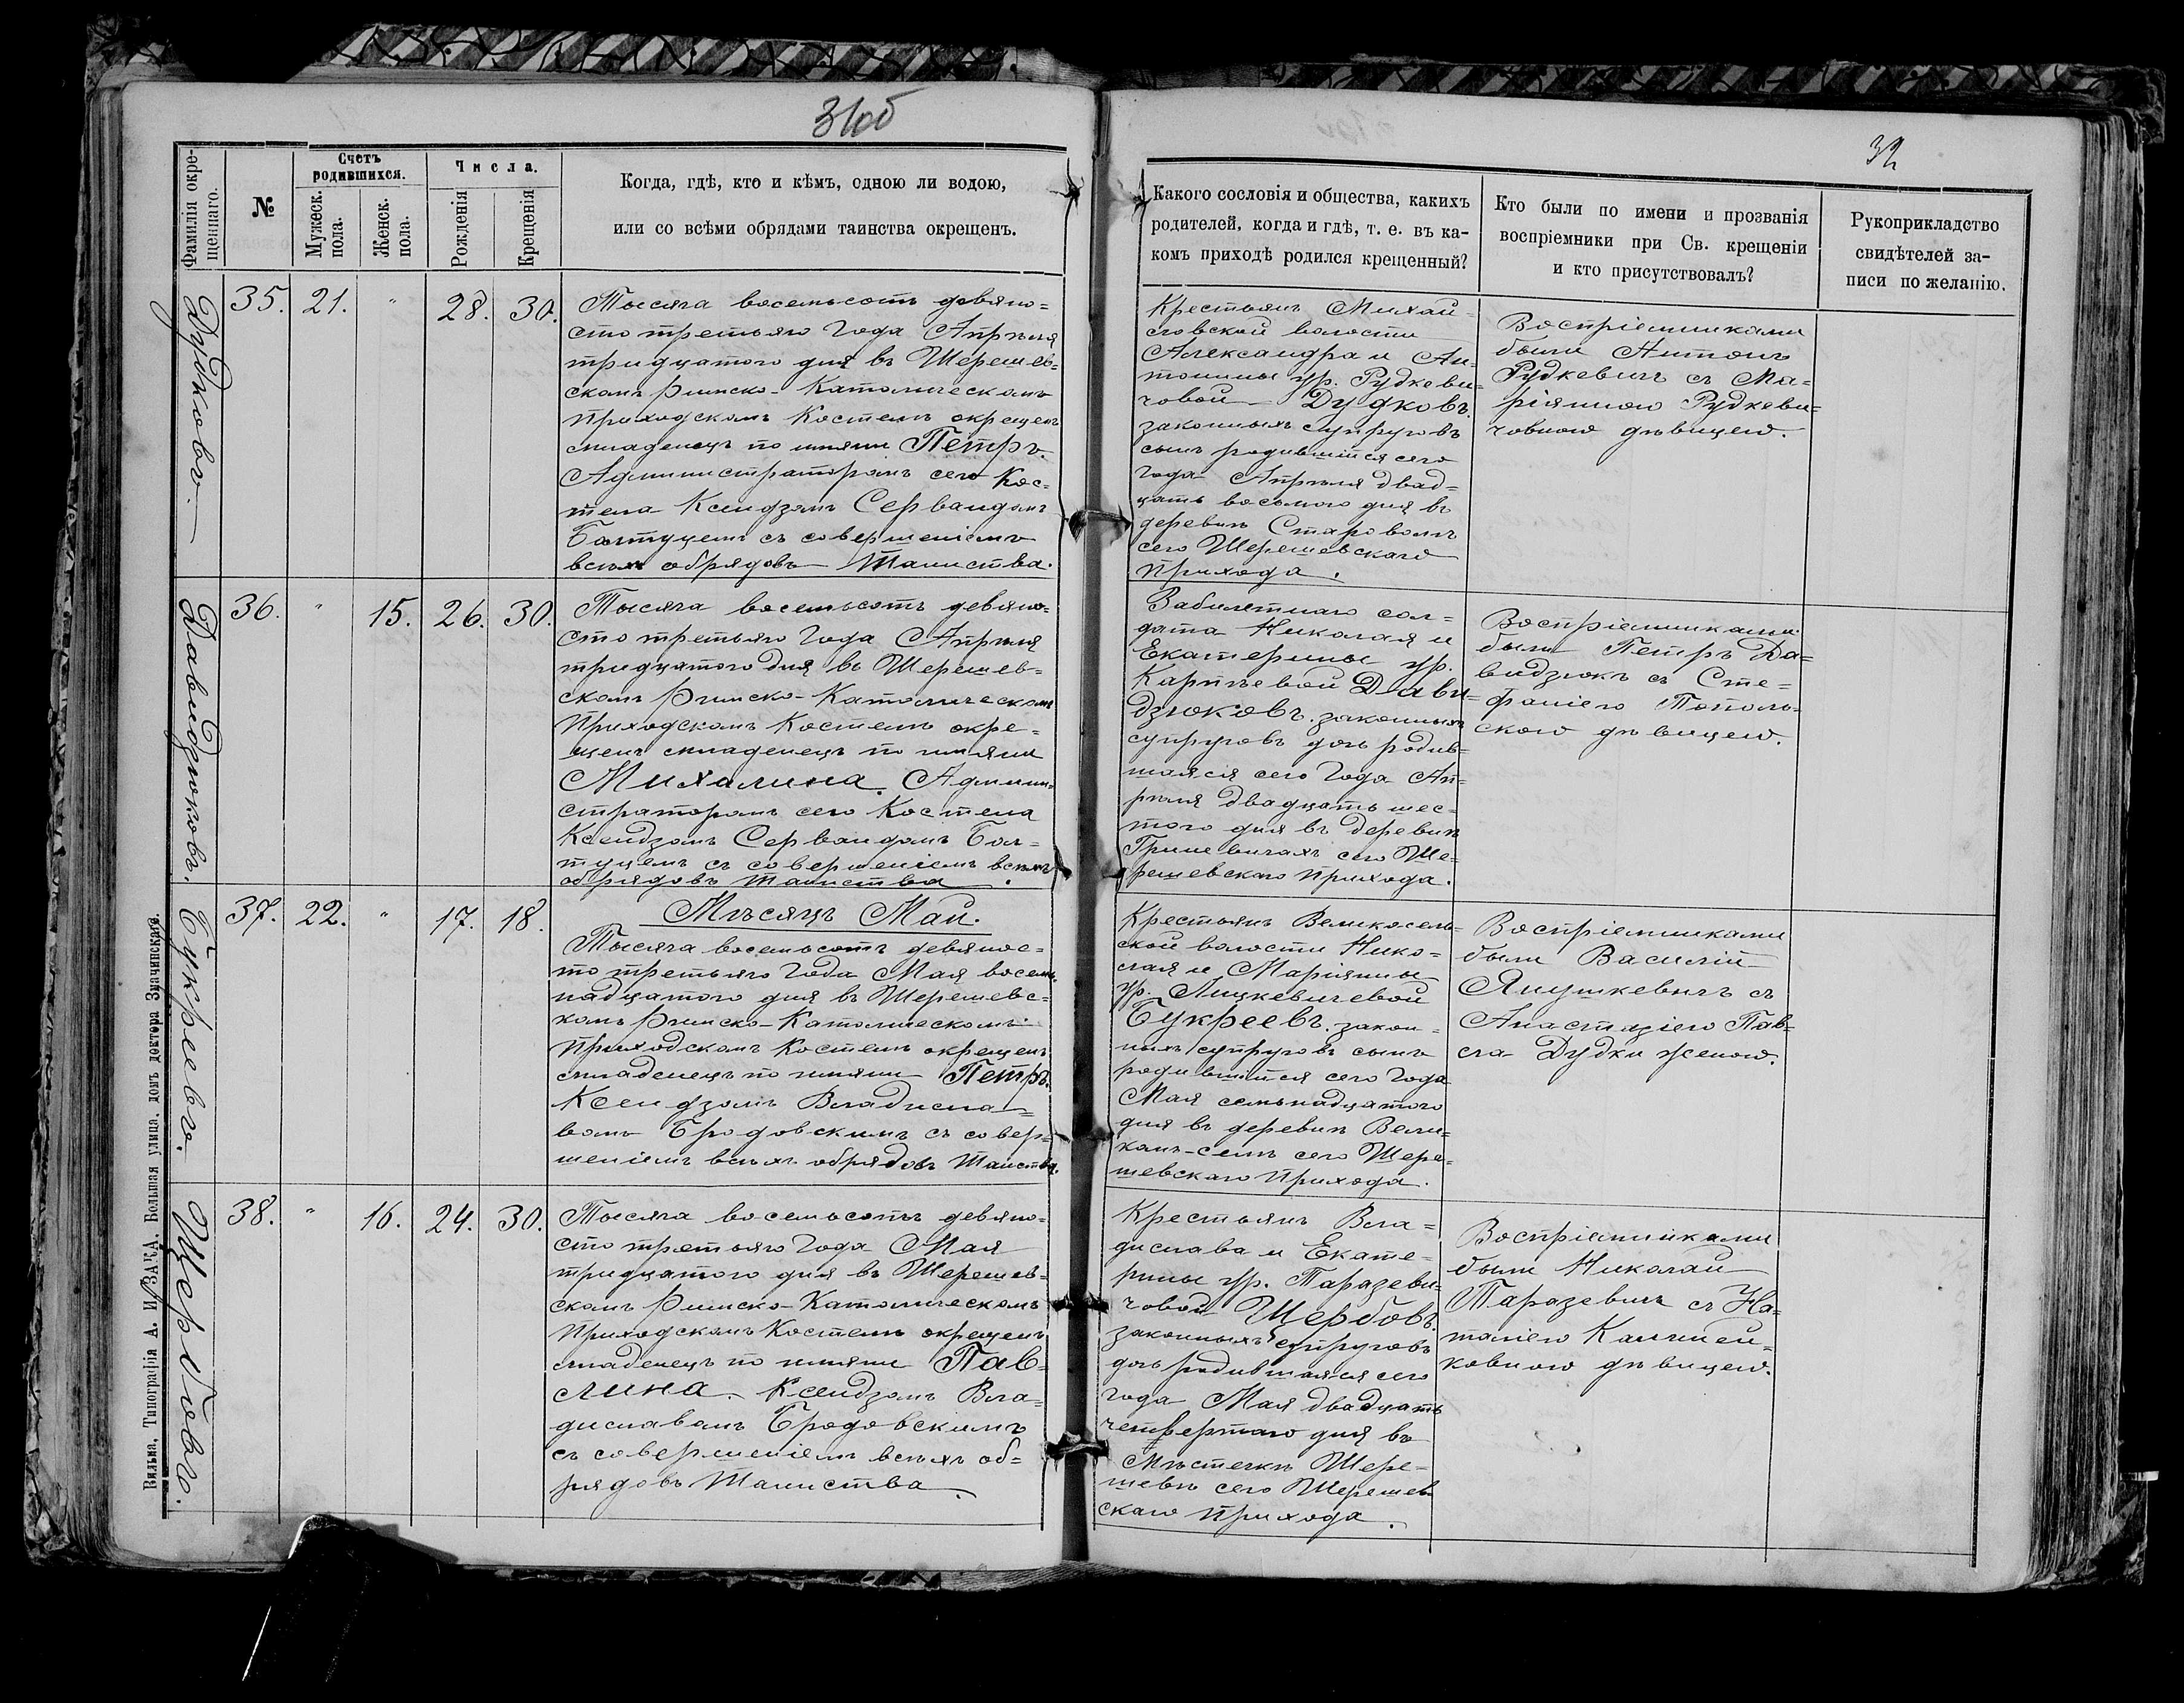 31об
32
Фамилія окре-
щеннаго.
№
Счетъ
родившихся.
Мужеск.
пола.
Женск.
пола.
Числа.
Рожденія
Крещенія
Когда, гдѣ, кто и кѣмъ, одною ли водою,
или со всѣми обрядами таинства окрещенъ.
Какого сословія и общества, какихъ
родителей, когда и гдѣ, т. е. въ ка-
комъ приходѣ родился крещенный?
Кто были по имени и прозванія
воспріемники при Св. крещеніи
и кто присутствовалъ?
Рукоприкладство
свидѣтелей за-
писи по желанію.
Дудковъ.
35. 21. " 28. 30.
Тысяча восемьсотъ девяно=
сто третьяго Года Апрѣля
тридцатого дня въ Шерешев=
скомъ Римско-Католическомъ
Приходскомъ Костелѣ окрещенъ
младенецъ по имени Петръ.
Администраторомъ сего Кос=
тела Ксендзомъ Сервандомъ
Балтуцемъ съ совершеніемъ
всѣхъ обрядовъ Таинства.
Крестьянъ Михай=
ловской волости
Александра и Ан=
тонины ур. Рудкеви=
човой Дудковъ.
законныхъ супруговъ
сынъ родившійся сего
года Апрѣля двад=
цать восьмого дня въ
деревнѣ Староволѣ
сего Шерешевскаго
Прихода.
Воспріемниками
были Антонъ
Рудкевичъ съ Ма=
ріянною Рудкеви=
човною дѣвицею.
Давидзюковъ.
36. " 15. 26. 30.
Тысяча восемьсотъ девяно=
сто третьяго Года Апрѣля
тридцатого дня въ Шерешев=
скомъ Римско-Католическомъ
Приходскомъ Костелѣ окре=
щенъ младенецъ по имени
Михалина. Админи=
страторомъ сего Костела
Ксендзомъ Сервандомъ Бал=
туцемъ съ совершеніемъ всѣхъ
обрядовъ Таинства.
Забилетнаго сол=
дата Николая и
Екатерины ур.
Карпѣевой Дави=
дзюковъ. законныхъ
супруговъ дочь родив=
шаяся сего Года Ап=
рѣля двадцать шес=
того дня въ деревнѣ
Гриневичахъ сего Ше=
решевскаго Прихода.
Воспріемниками
были Петръ Да=
видзюкъ съ Сте=
фаніею Тополь=
скою дѣвицею.
Букреевъ.
37. 22. " 17. 18.
Мѣсяцъ Май.
Тысяча восемьсотъ девянос=
то третьяго Года Мая восем=
надцатого дня въ Шерешевс=
комъ Римско-Католическомъ
Приходскомъ Костелѣ окрещенъ
младенецъ по имени Петръ.
Ксендзомъ Владисла=
вомъ Бродовскимъ съ совер=
шеніемъ всѣхъ обрядовъ Таинства.
Крестьянъ Великосель=
ской волости Нико=
лая и Маріянны
ур. Лицкевичевой
Букреевъ. закон=
ныхъ супруговъ сынъ
родившійся сего Года
Мая семьнадцатого
дня въ деревнѣ Вели=
комъ-Селѣ сего Шере=
шевскаго Прихода.
Воспріемниками
были Василій
Янушкевичъ съ
Анастазіею Пав=
ла Дудки женою.
Щербовъ.
38. " 16. 24. 30.
Тысяча восемьсотъ девяно=
сто третьяго Года Мая
тридцатого дня въ Шерешев=
скомъ Римско-Католическомъ
Приходскомъ Костелѣ окрещенъ
младенецъ по имени Пав=
лина. Ксендзомъ Вла=
диславомъ Бродовскимъ
съ совершеніемъ всѣхъ об=
рядовъ Таинства.
Крестьянъ Вла=
дислава и Екате=
рины ур. Таразеви=
човой Щербовъ.
законныхъ супруговъ
дочь родившаяся сего
года Мая двадцать
четвертаго дня въ
Мѣстечкѣ Шере=
шевѣ сего Шерешев
скаго Прихода.
Воспріемниками
были Николай
Таразевичъ съ На=
таліею
ковною дѣвицею.
Вильна, Типографія А. И. ЗАКА. Большая улица, домъ доктора Значинскаго.